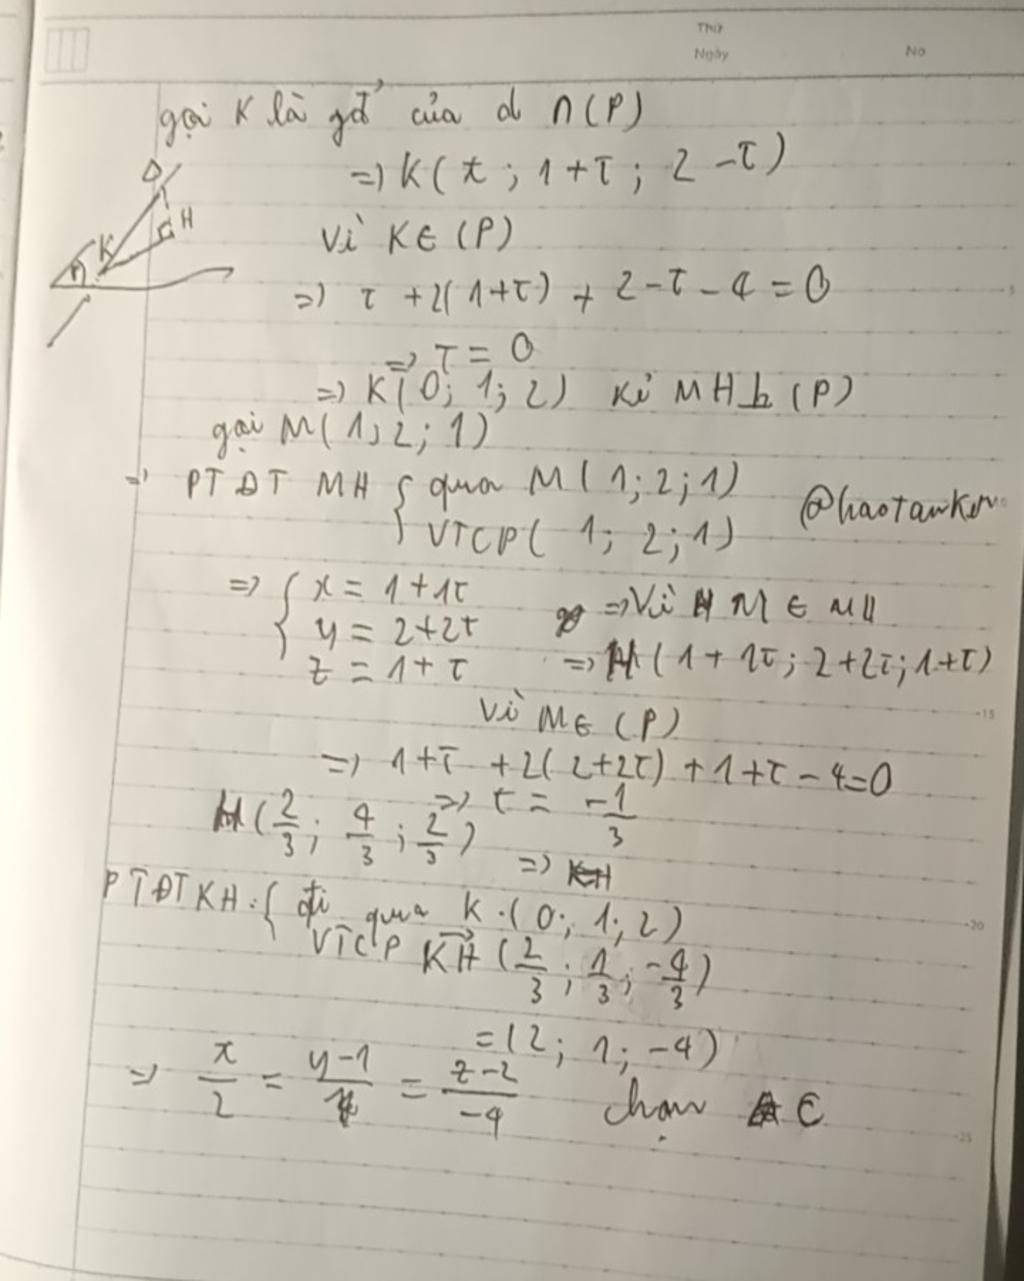 Thứ
Ngày No
gọi K là gđ của d ∩ (P)
=) K( t ; 1+t ; 2 -t )
Vì K ∈ (P)
=) t + 2( 1+t) + 2-t - 4 = 0
=) t = 0
=) K( 0; 1; 2) Kẻ MH ⊥ (P)
gọi M( 1; 2; 1)
=) PT ĐT MH { qua M( 1; 2; 1)
VTCP( 1; 2; 1)
@haotawken
=) { x = 1 + 1t =) Vì M ∈ MH
y = 2+2t
z = 1+ t =) H( 1+ 1t; 2+2t; 1+t)
Vì M ∈ (P)
=) 1+t + 2( 2+2t) + 1+t - 4=0
=) t = -1/3
H( 2/3 ; 4/3 ; 2/3 ) =) KH
PTĐT KH: { đi qua K.( 0; 1; 2)
VTCP KH ( 2/3 ; 1/3 ; -4/3 )
= ( 2; 1; -4)
=) x/2 = y-1/1 = z-2/-4 chọn C
D
K
H